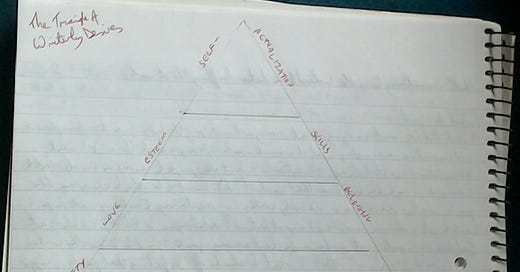 The Triangle
Writerly Desires
SELF-
ACTUALIZATION
ESTEEM
SKILLS
LOVE
BUILDING
TY